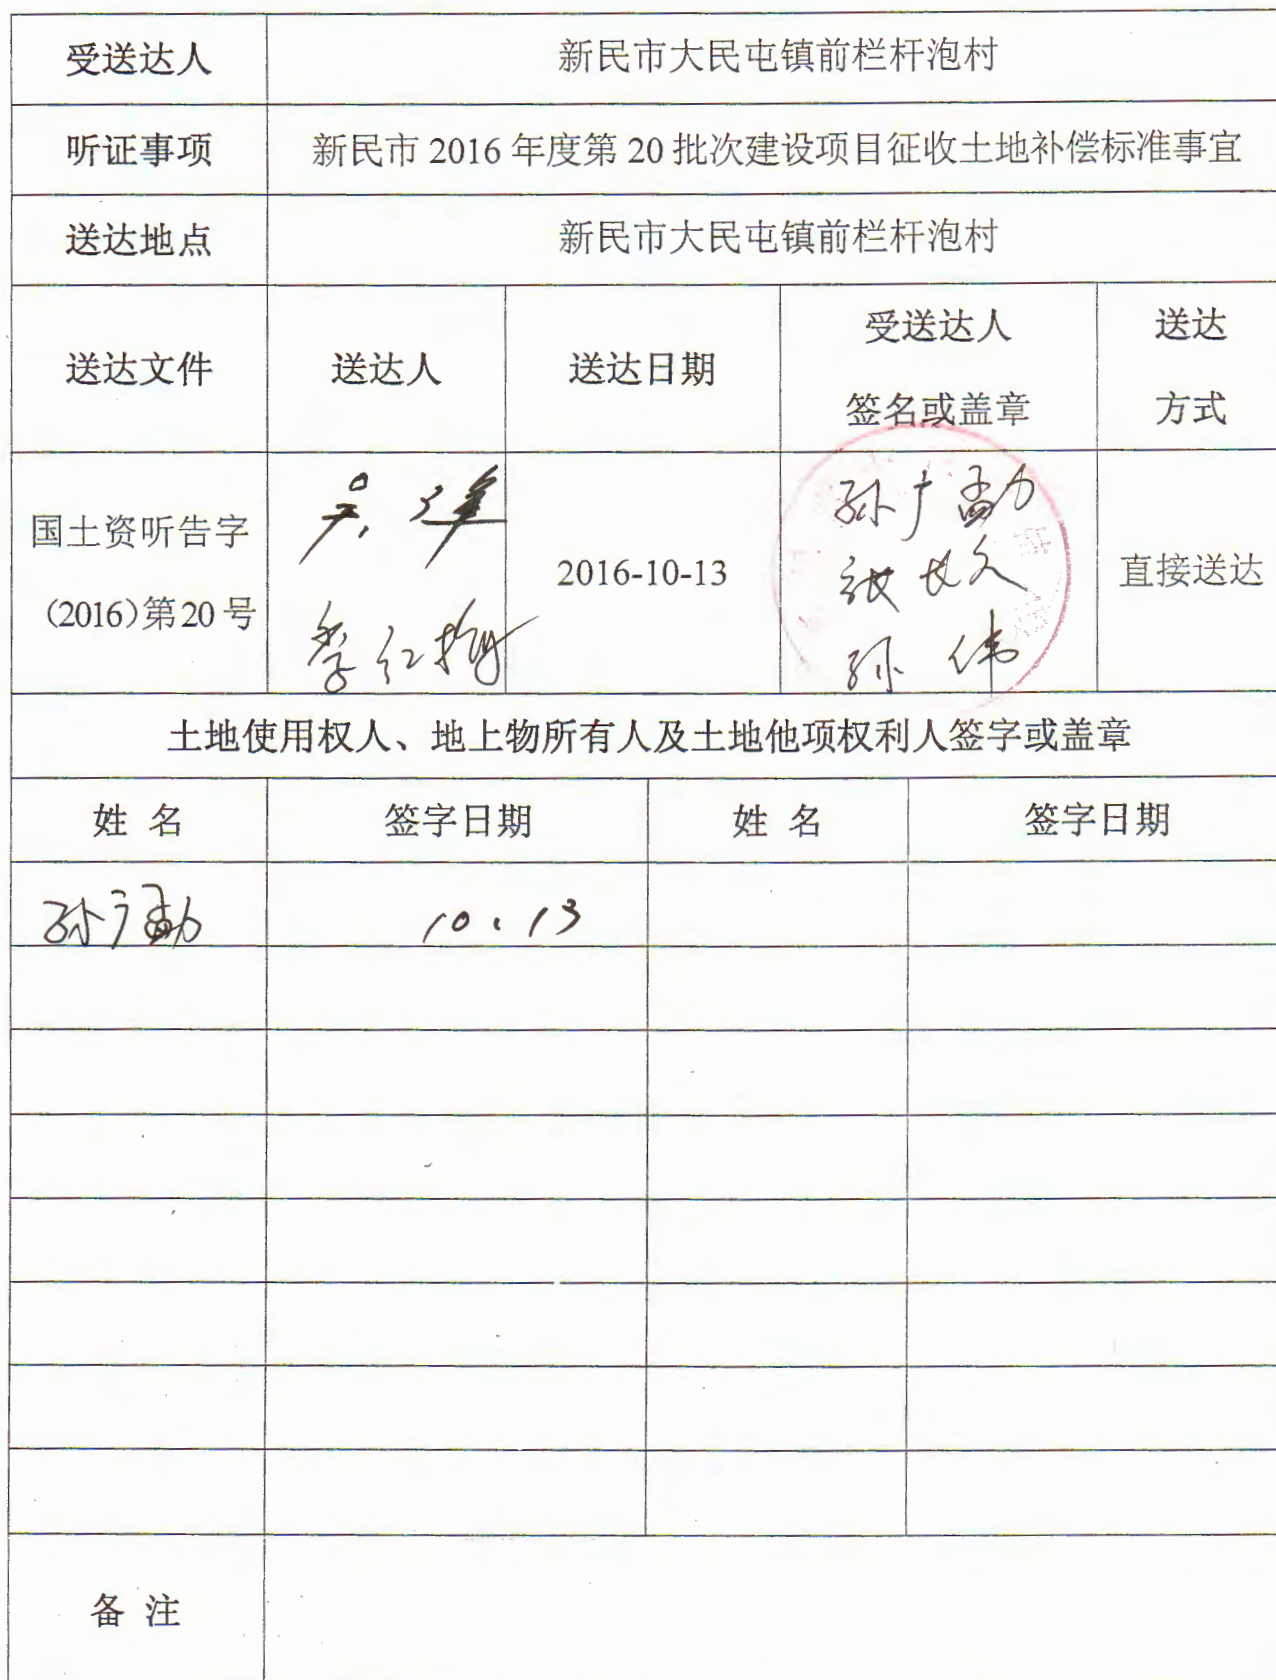 受送达人 新民市大民屯镇前栏杆泡村
听证事项 新民市2016年度第20批次建设项目征收土地补偿标准事宜
送达地点 新民市大民屯镇前栏杆泡村
送达文件 送达人 送达日期 受送达人 签名或盖章 送达 方式
国土资听告字
(2016)第20号
李红梅
2016-10-13
孙广勐
孙伟
直接送达
土地使用权人、地上物所有人及土地他项权利人签字或盖章
姓 名 签字日期 姓 名 签字日期
孙广勐 10.13
备 注